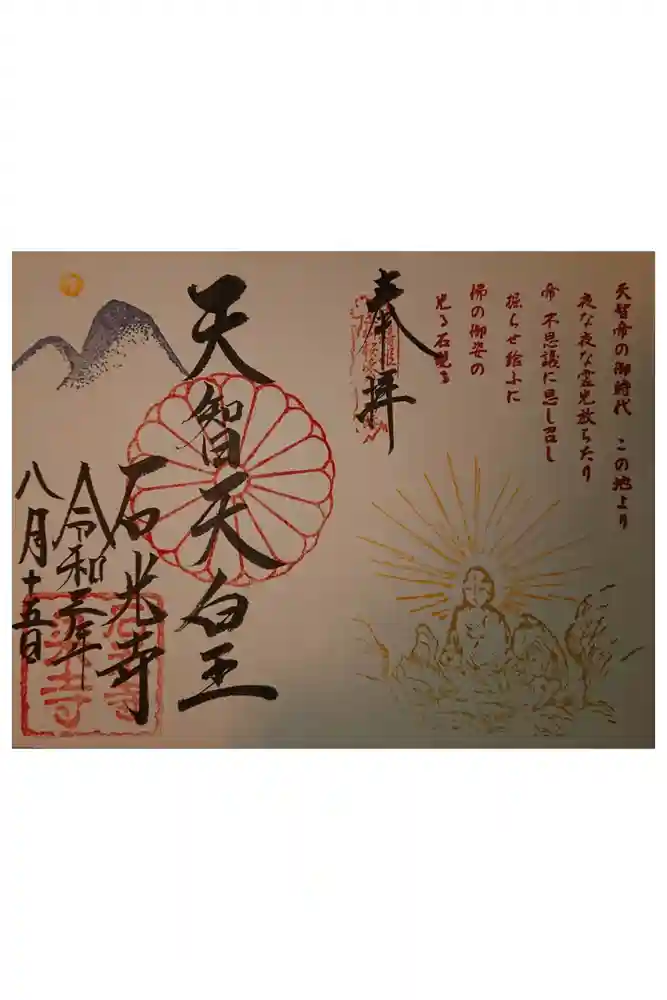 天智帝の御時代　この地より
夜な夜な霊光放ちたり
帝 不思議に思し召し
掘らせ給ふに
佛の御姿の
光る石現る
奉拝
天智天皇
石光寺
令和三年
八月十五日